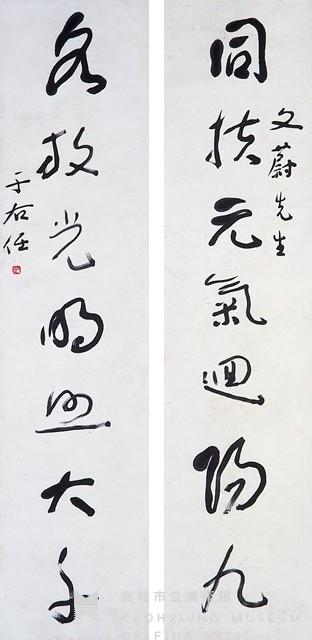 同扶元氣迴陽九
文蔚先生
各放光明照大千
于右任
高雄市立美術館
KAOHSIUNG MUSEUM
OF FINE ARTS